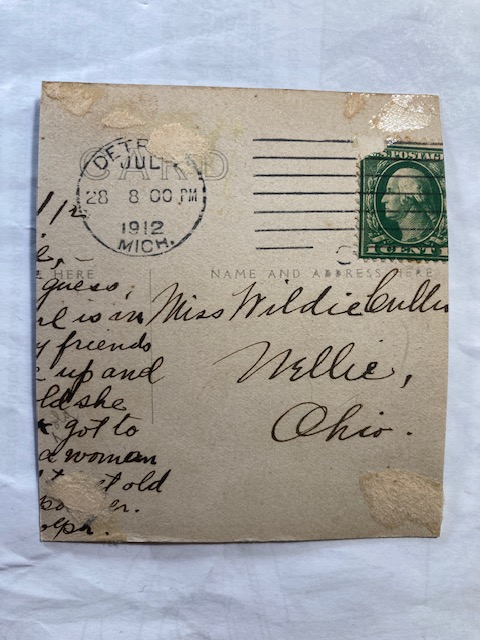 DETR
JUL
28 8 00 PM
1912
MICH.
CARD
U.S. POSTAGE
1 CENT
HERE
NAME AND ADDRESS HERE
Miss Wildie Culli
Nellie,
Ohio.
guess,
is in
friends
up and
she
got to
a woman
old